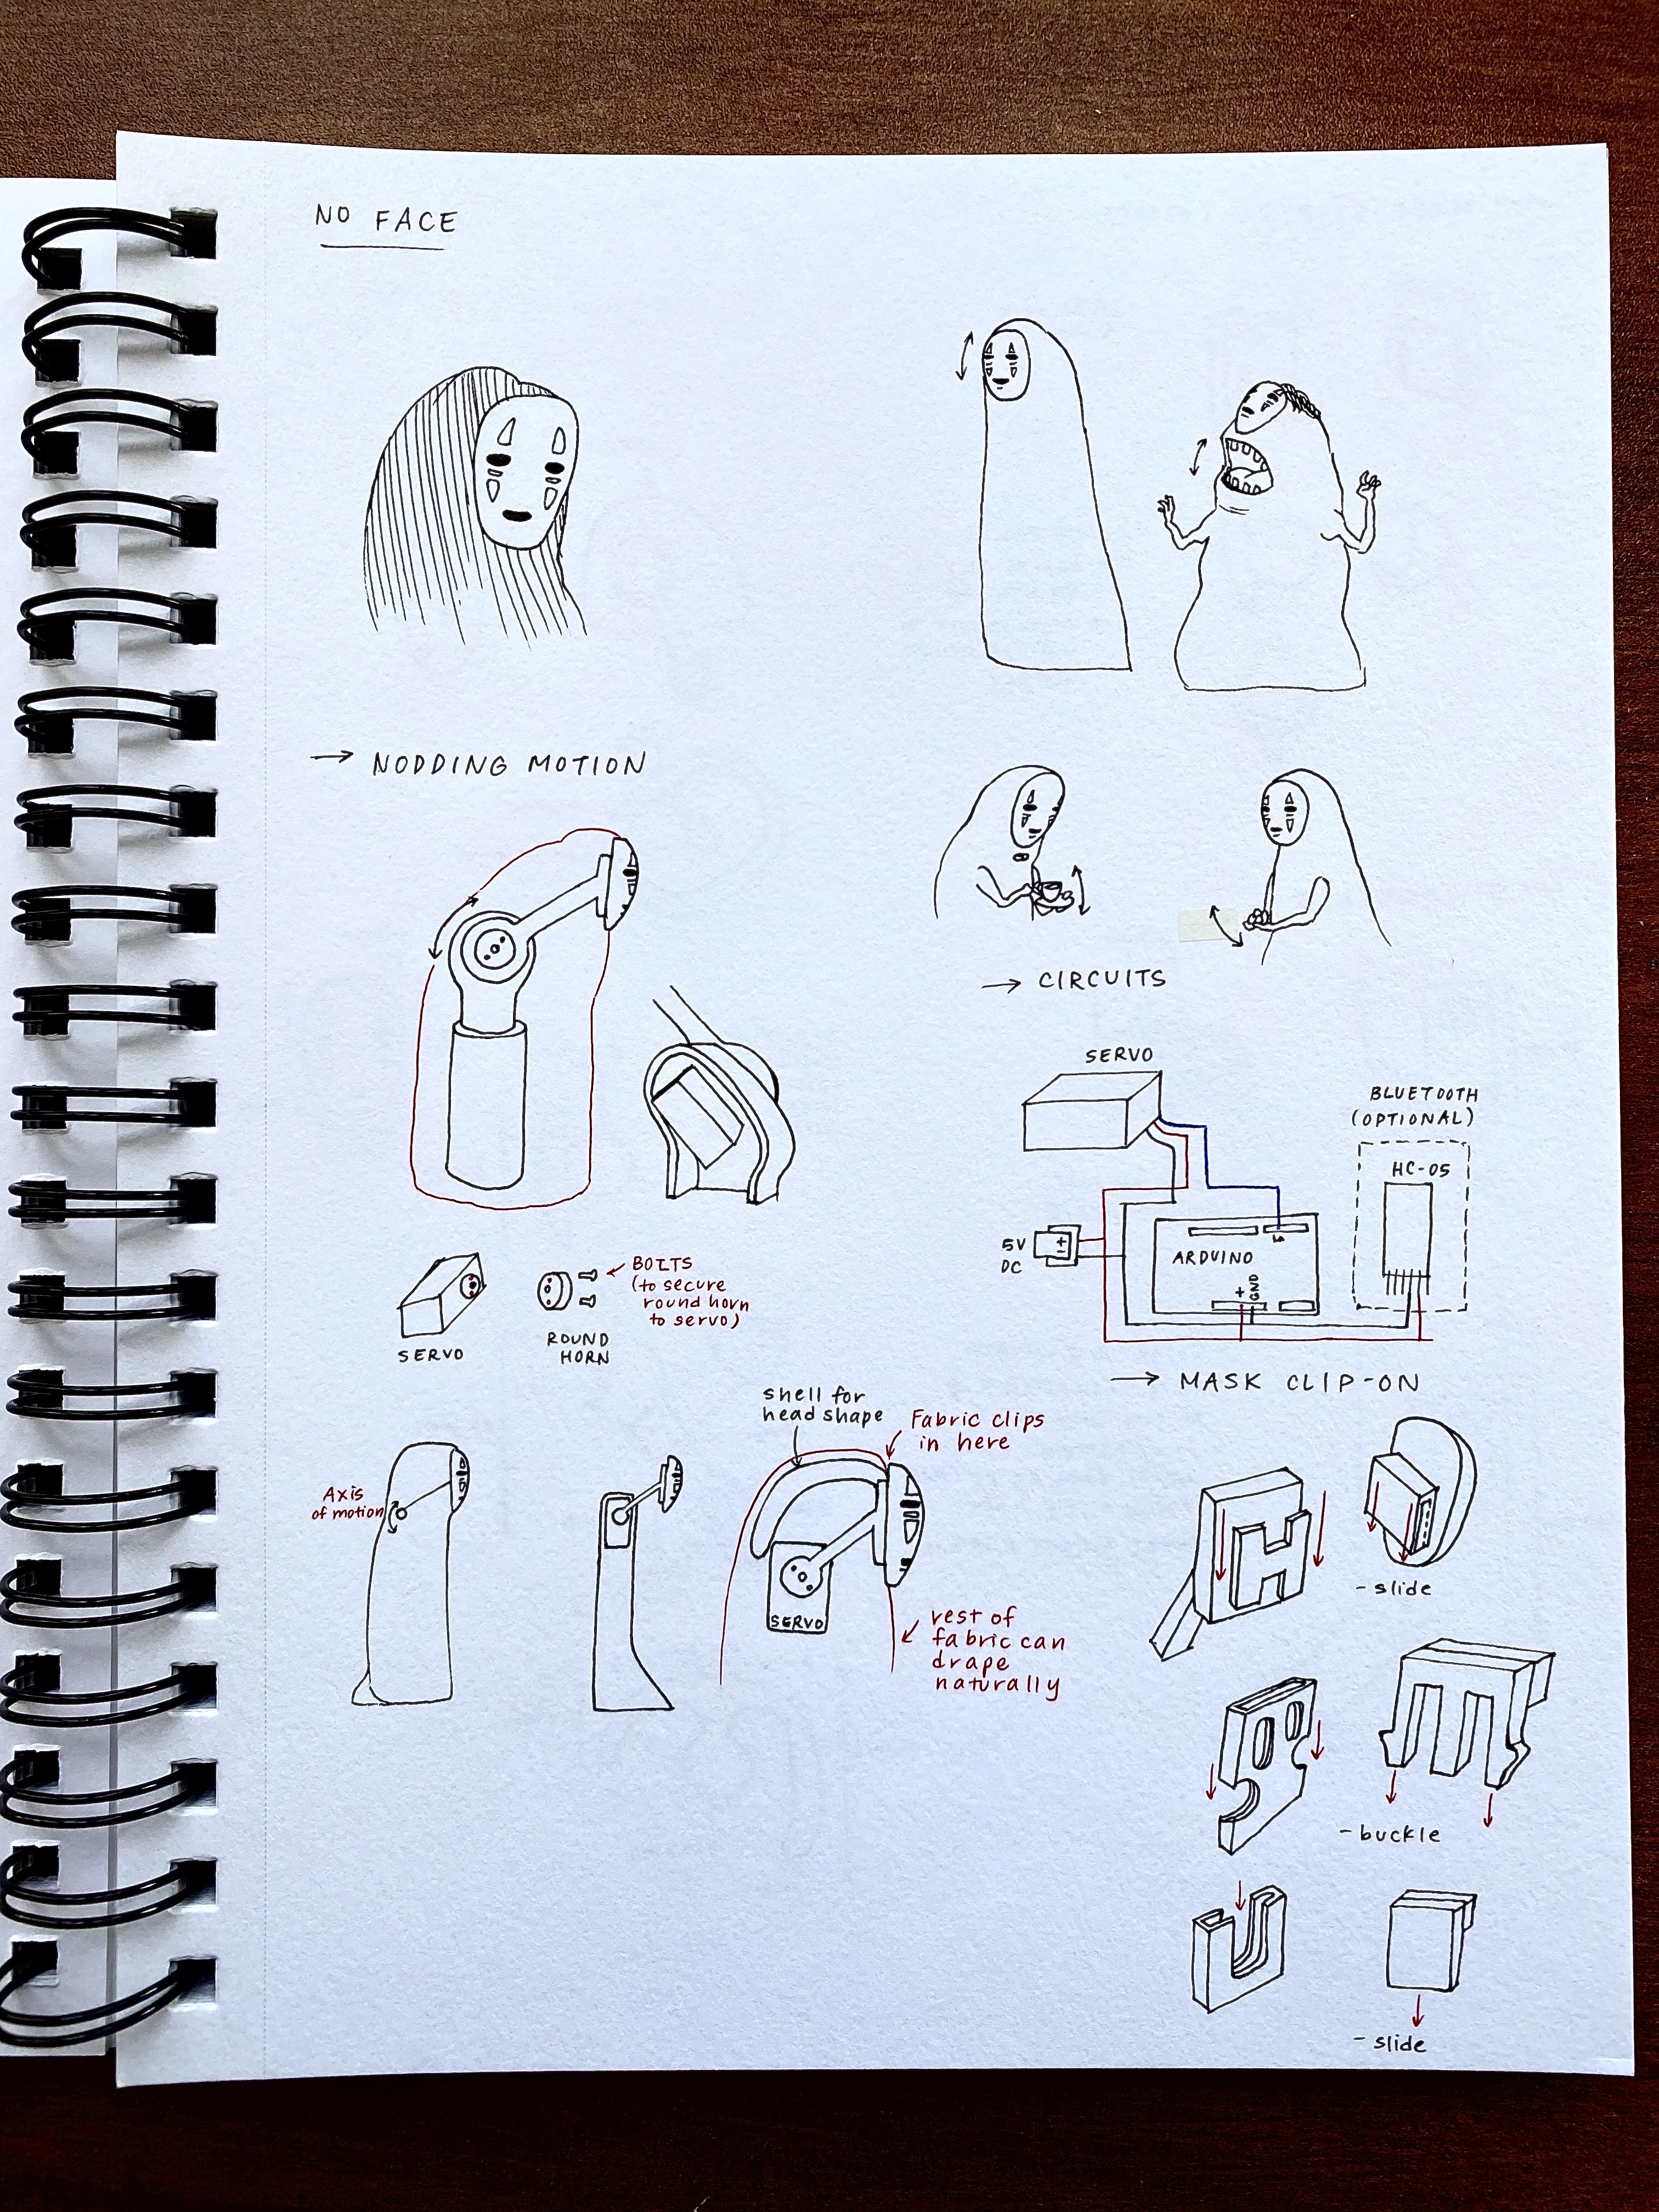 NO FACE
→ NODDING MOTION
SERVO
ROUND
HORN
BOLTS
(to secure
round horn
to servo)
Axis
of motion
shell for
head shape
Fabric clips
in here
SERVO
rest of
fabric can
drape
naturally
→ CIRCUITS
SERVO
BLUETOOTH
(OPTIONAL)
HC-05
5V
DC
+
-
ARDUINO
+
GND
→ MASK CLIP-ON
- slide
- buckle
- slide